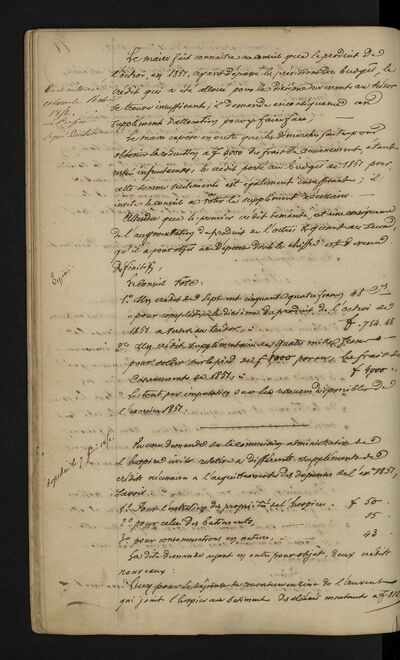 Le maire fait connaître au conseil que le produit de
l'octroi, en 1851, ayant dépassé les prévisions du budget, le
crédit qui a été alloué pour le dixième revenant au trésor
se trouve insuffisant; il demande en conséquence un
supplément d'allocation pour y faire face;
Le maire expose en outre que les démarches faites pour
obtenir la réduction à 4000 des frais de casernement, étant
restées infructueuses, le crédit porté au budget de 1851 pour
cette somme seulement est également insuffisant; il
invite le conseil à voter le supplément nécessaire.
Attendu que le premier crédit demandé est une conséquence
de l'augmentation du produit de l'octroi &
qu'il a pour objet une dépense dont le chiffre est
définitif;
Le conseil vote:
1º Un crédit de sept cent cinquante quatre francs 48 c
pour compléter le dixième du produit de l'octroi de
1851 à verser au trésor, f. 754. 48
2º Un crédit supplémentaire de quatre mille francs
pour solder sur le pied de f 8000 les frais de
Casernement de 1851, f 4000.
Le tout par imputation sur les ressources disponibles de
l'exercice 1851.
Vu une demande de la commission administrative de
l'hospice civil relative à différents suppléments de
crédit nécessaires à l'acquittement des dépenses de l'ex.ce 1851,
savoir:
1º Pour l'entretien des propriétés de l'hospice. f 50.
2º pour celui des bâtiments, 15
3º pour consommations en nature, 43
La dite demande ayant en outre pour objet, deux crédits
nouveaux:
qui joint l'hospice au bâtiment des aliénés montant à f